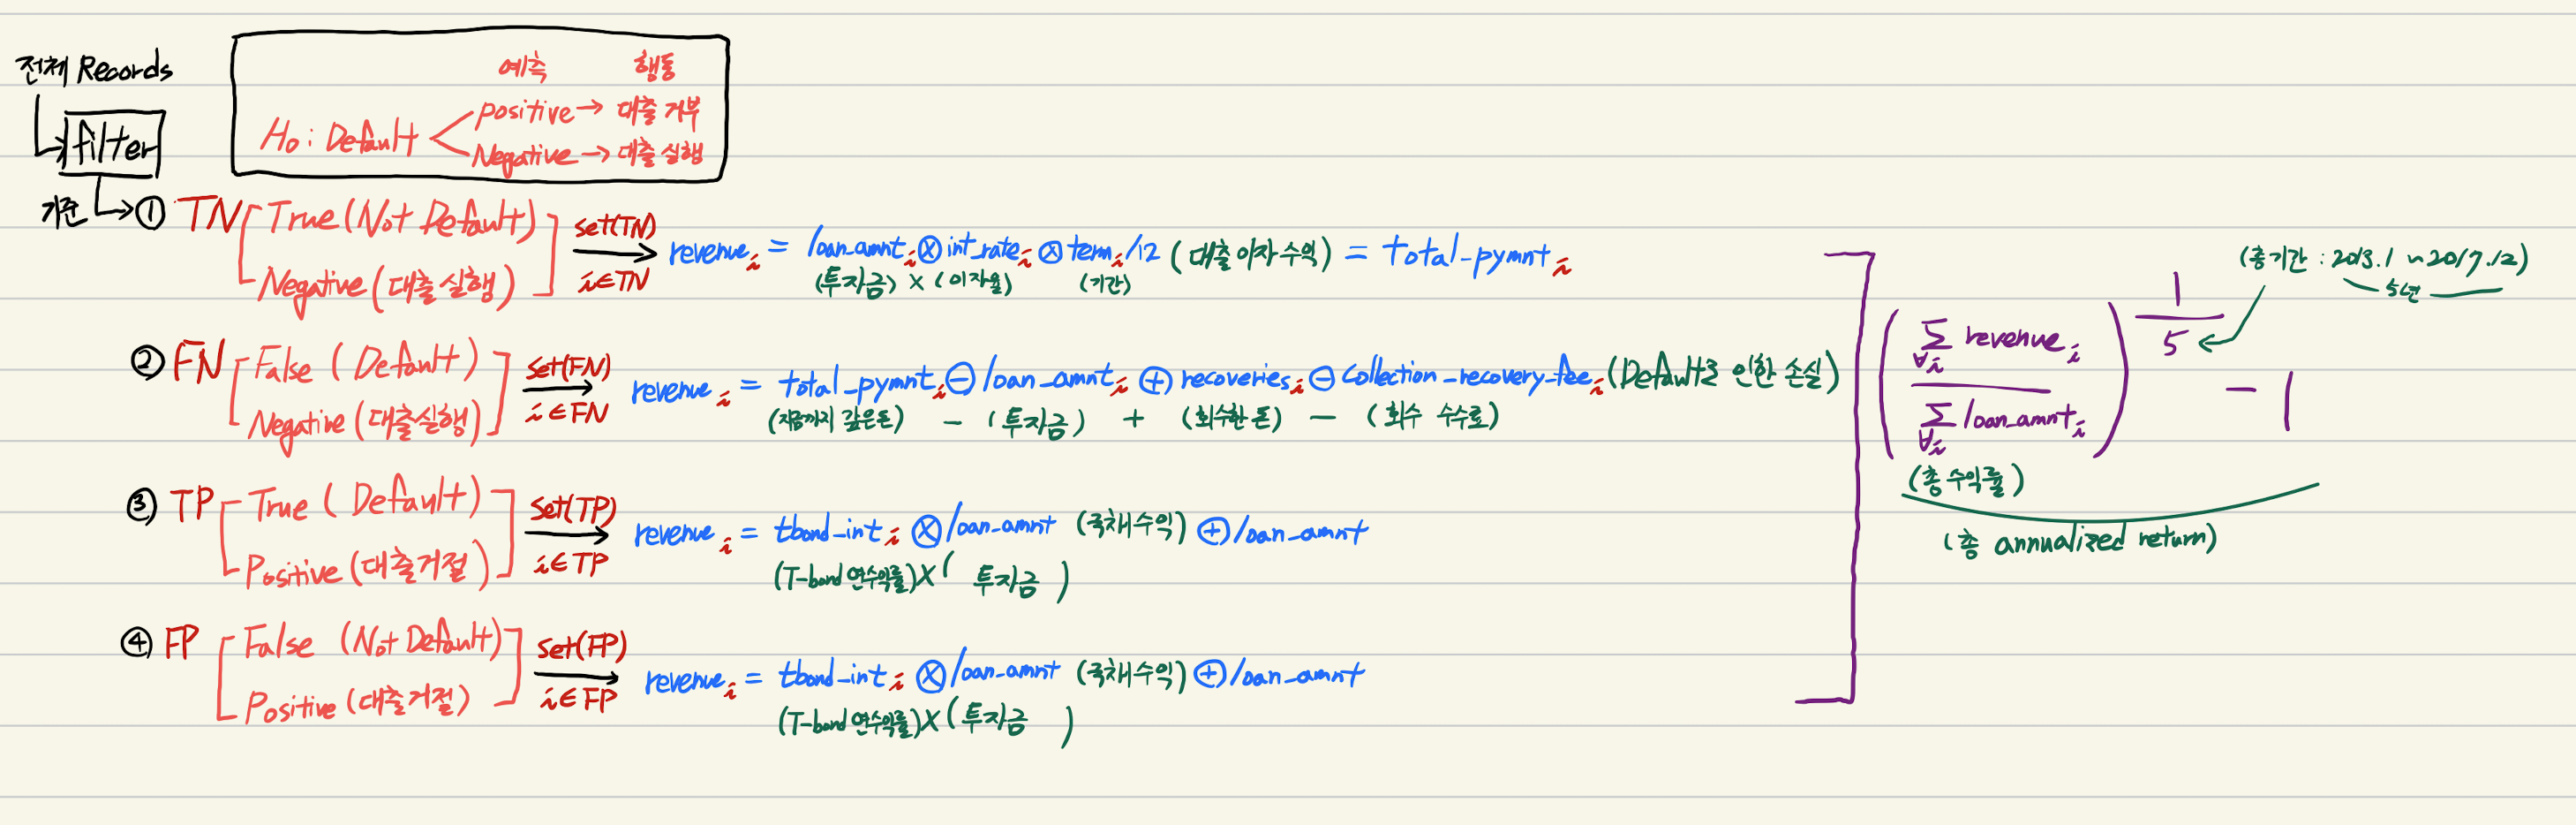 전체 Records
filter
기준
예측 행동
Ho : Default
positive → 대출 거부
Negative → 대출 실행
① TN
True (Not Default)
Negative (대출 실행)
set(TN)
i∈TN
revenue i = loan_amnt i ⊗ int_rate i ⊗ term i /12 (대출 이자 수익) = total_pymnt i
(투자금) × (이자율) (기간)
② FN
False ( Default )
Negative (대출실행)
set(FN)
i∈FN
revenue i = total_pymnt i ⊖ loan_amnt i ⊕ recoveries i ⊖ collection_recovery_fee i (Default로 인한 손실)
(지금까지 갚은돈) - (투자금) + (회수한 돈) - (회수 수수료)
③ TP
True ( Default )
Positive (대출거절)
set(TP)
i∈TP
revenue i = tbond_int i ⊗ loan_amnt (국채수익) ⊕ loan_amnt
(T-bond 연수익률) × ( 투자금 )
④ FP
False (Not Default)
Positive (대출거절)
set(FP)
i∈FP
revenue i = tbond_int i ⊗ loan_amnt (국채수익) ⊕ loan_amnt
(T-bond 연수익률) × ( 투자금 )
(총기간 : 2013.1 ~ 2017.12)
5년
1
5
∑ revenue i
∀i
∑ loan_amnt i
∀i
- 1
(총 수익률)
(총 annualized return)